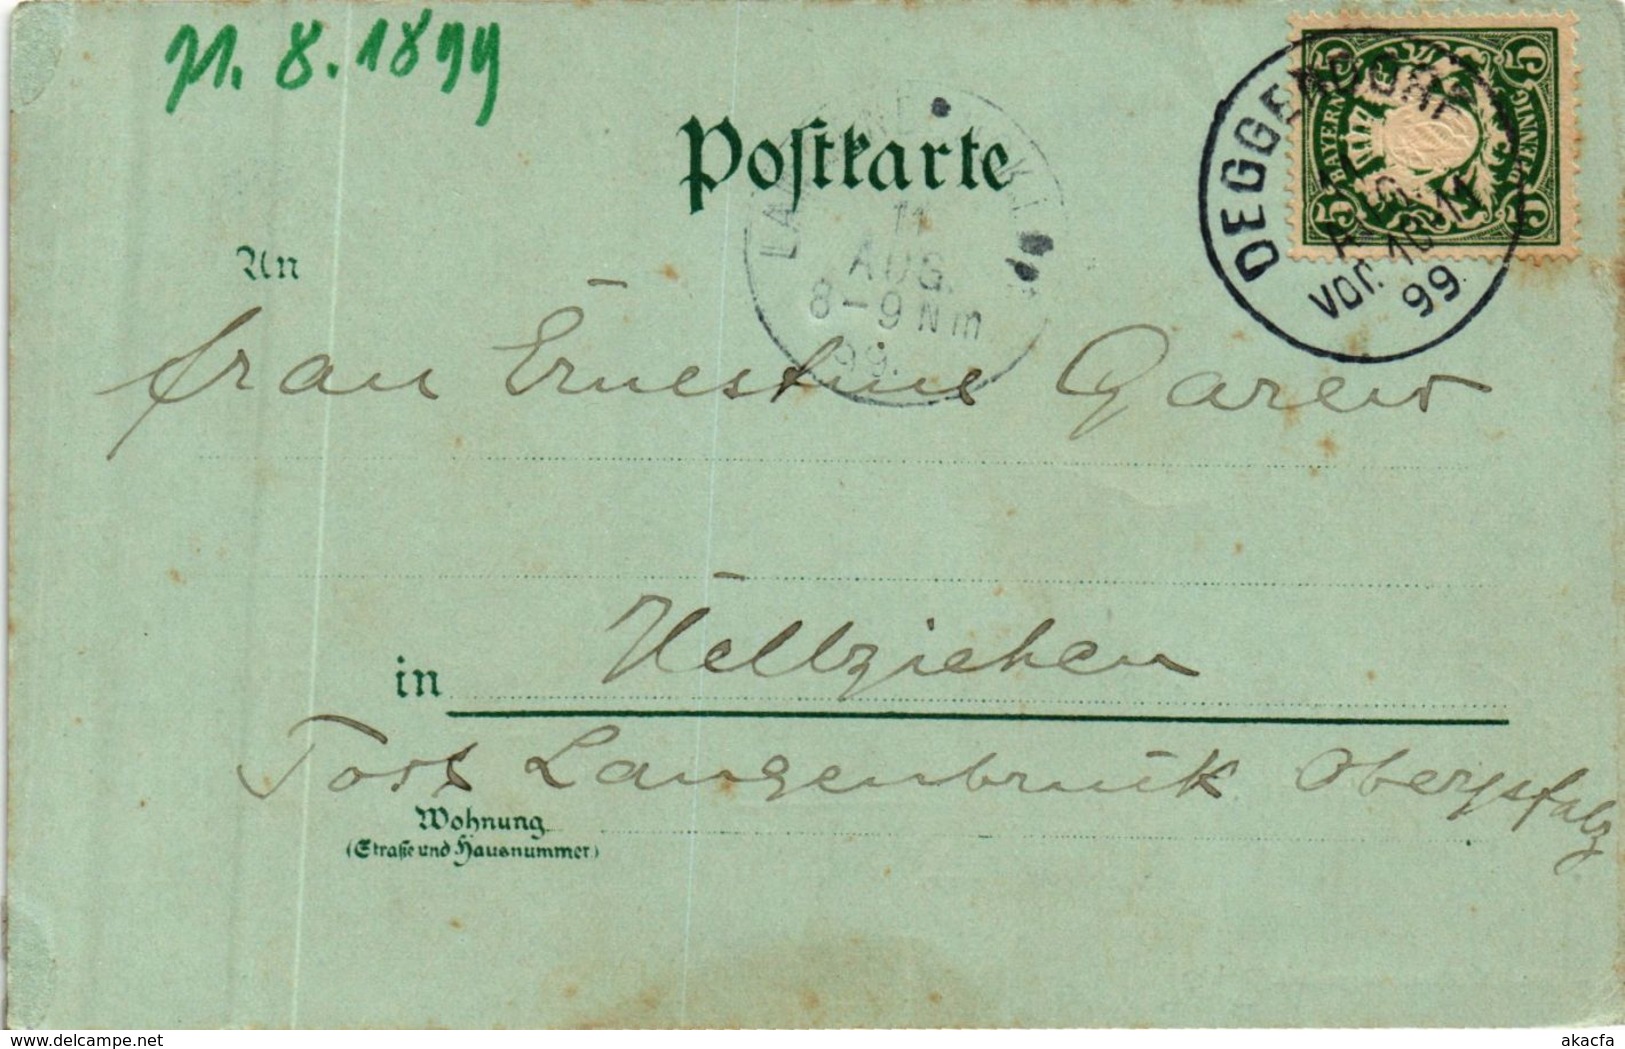 11. 8. 1899
Postkarte
BAYERN
5 5
PFENNIG
5 5
DEGGENDORF
AUG.
Vor. 10-11
99.
11
AUG.
8-9 Nm
99.
An
Frau Ernestine
in
Post Langenbruck Oberpfalz
Wohnung
(Straße und Hausnummer)
www.delcampe.net
akacfa